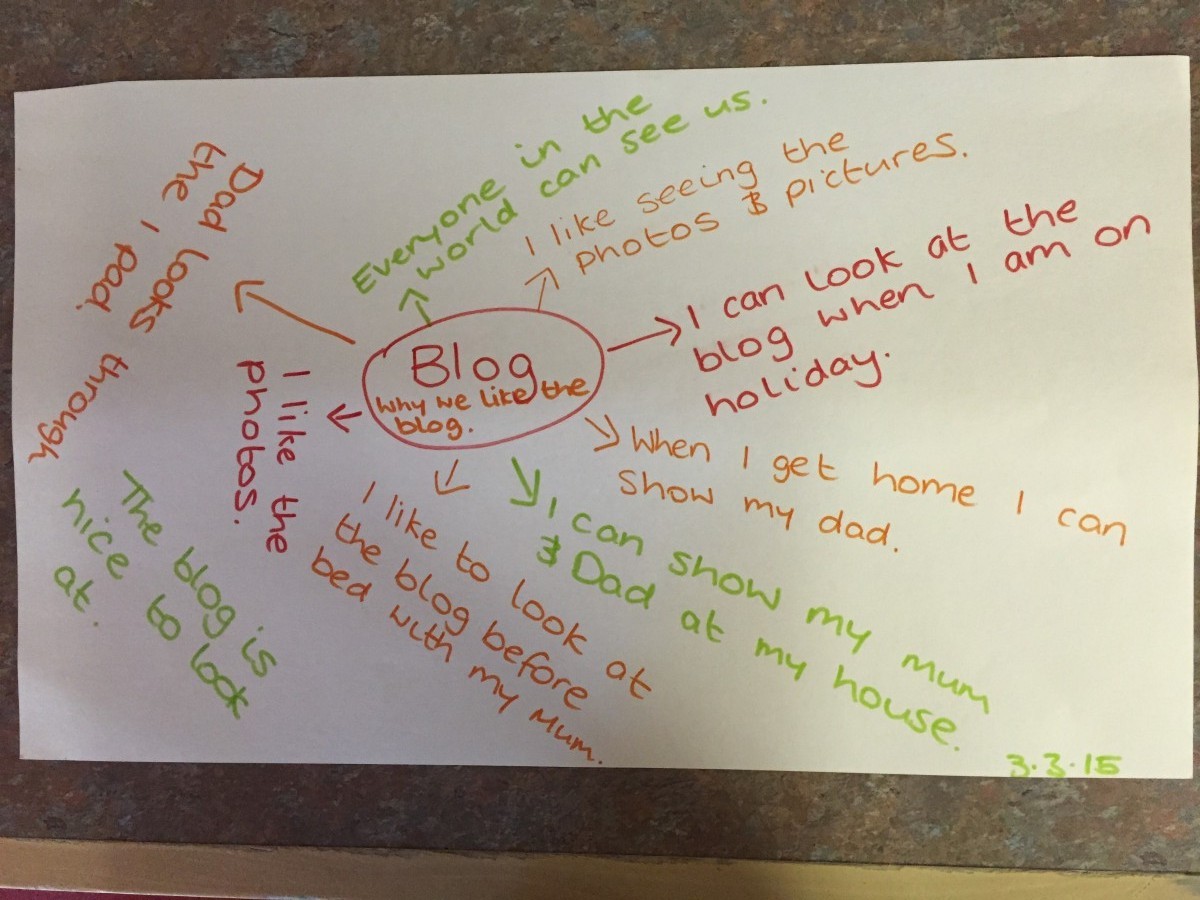 Blog
why we like the
blog.
Everyone in the
world can see us.
I like seeing the
photos & pictures.
I can look at the
blog when I am on
holiday.
When I get home I can
show my dad.
I can show my mum
& Dad at my house.
I like to look at
the blog before
bed with my mum.
I like the
photos.
Dad looks through
the I pad.
The blog is
nice to look
at.
3.3.15